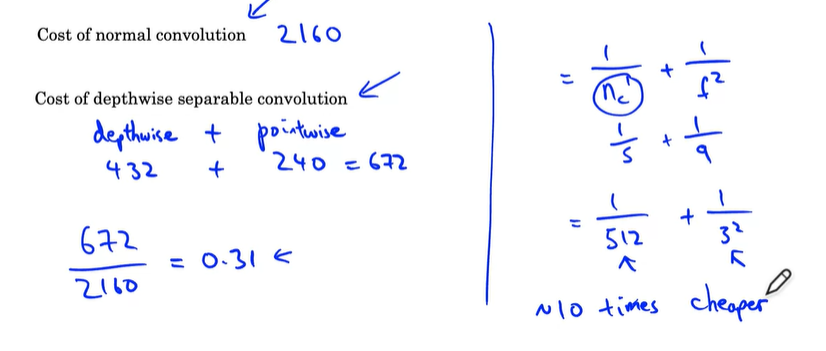 Cost of normal convolution 2160
Cost of depthwise separable convolution
depthwise + pointwise
432 + 240 = 672
672
2160
= 0.31
= 1/n_c' + 1/f²
1/5 + 1/9
= 1/512 + 1/3²
~10 times cheaper